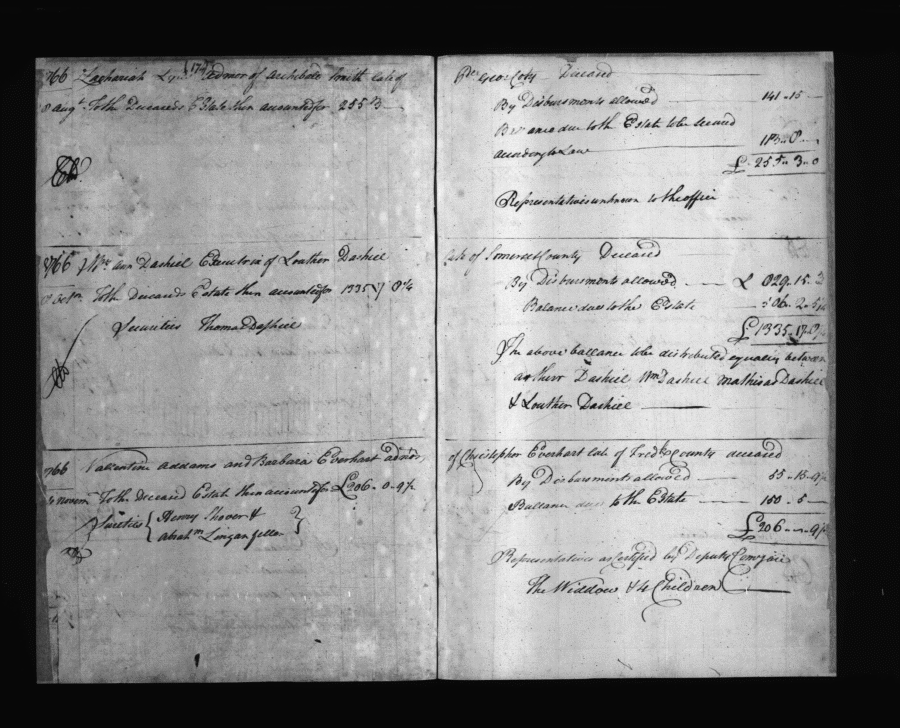 (17)
1766 Zachariah Lyn Admor of Archibald Smith late of
8 Augt. To the Deceaseds Estate then accounted for 255 " 3
1766 Mrs. Ann Dashiel Executrix of Louther Dashiel
To the Deceaseds Estate then accounted for 1335
Securities Thomas Dashiel
1766 Vallentine Addams and Barbara Everhart admrs
Novem To the Deceasd Estate then accounted for £206 - 0 - 9½
Sureties { Henry Shover &
Abrahm Linganfelter }
Pr. Geo: Coty Deceased
By Disbursments allowed 141 - 15
Ballance due to the Estate to be secured
according to Law 113 " 8
£ 255 " 3 " 0
Representatives unknown to the office
late of Somerset County Deceased
By Disbursments allowed £ 829 - 15 - 3
Balance due to the Estate 506 - 2 -
£ 1335 - 17 -
The above ballance to be distributed equally between
arthur Dashiel Wm. Dashiel Mathias Dashiel
& Louther Dashiel
of Christopher Everhart late of Fredk. County deceased
By Disbursments allowed 55 - 15 - 9½
Ballance due to the Estate 150 - 5
£ 206 - " - 9½
Representatives as Certifed by Deputy Comysarie
The Widdow & 4 Children